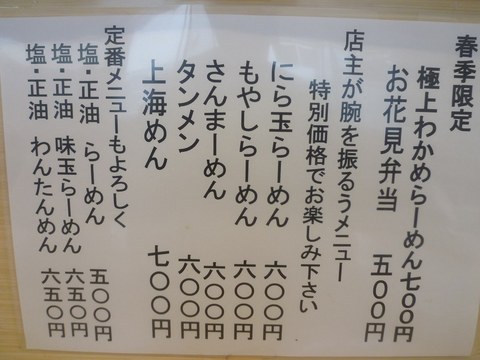 春季限定
極上わかめらーめん七〇〇円
お花見弁当 五〇〇円
店主が腕を振るうメニュー
特別価格でお楽しみ下さい
にら玉らーめん 六〇〇円
もやしらーめん 六〇〇円
さんまーめん 六〇〇円
タンメン 六〇〇円
上海めん 七〇〇円
定番メニューもよろしく
塩・正油 らーめん 五〇〇円
塩・正油 味玉らーめん 六五〇円
塩・正油 わんたんめん 六五〇円